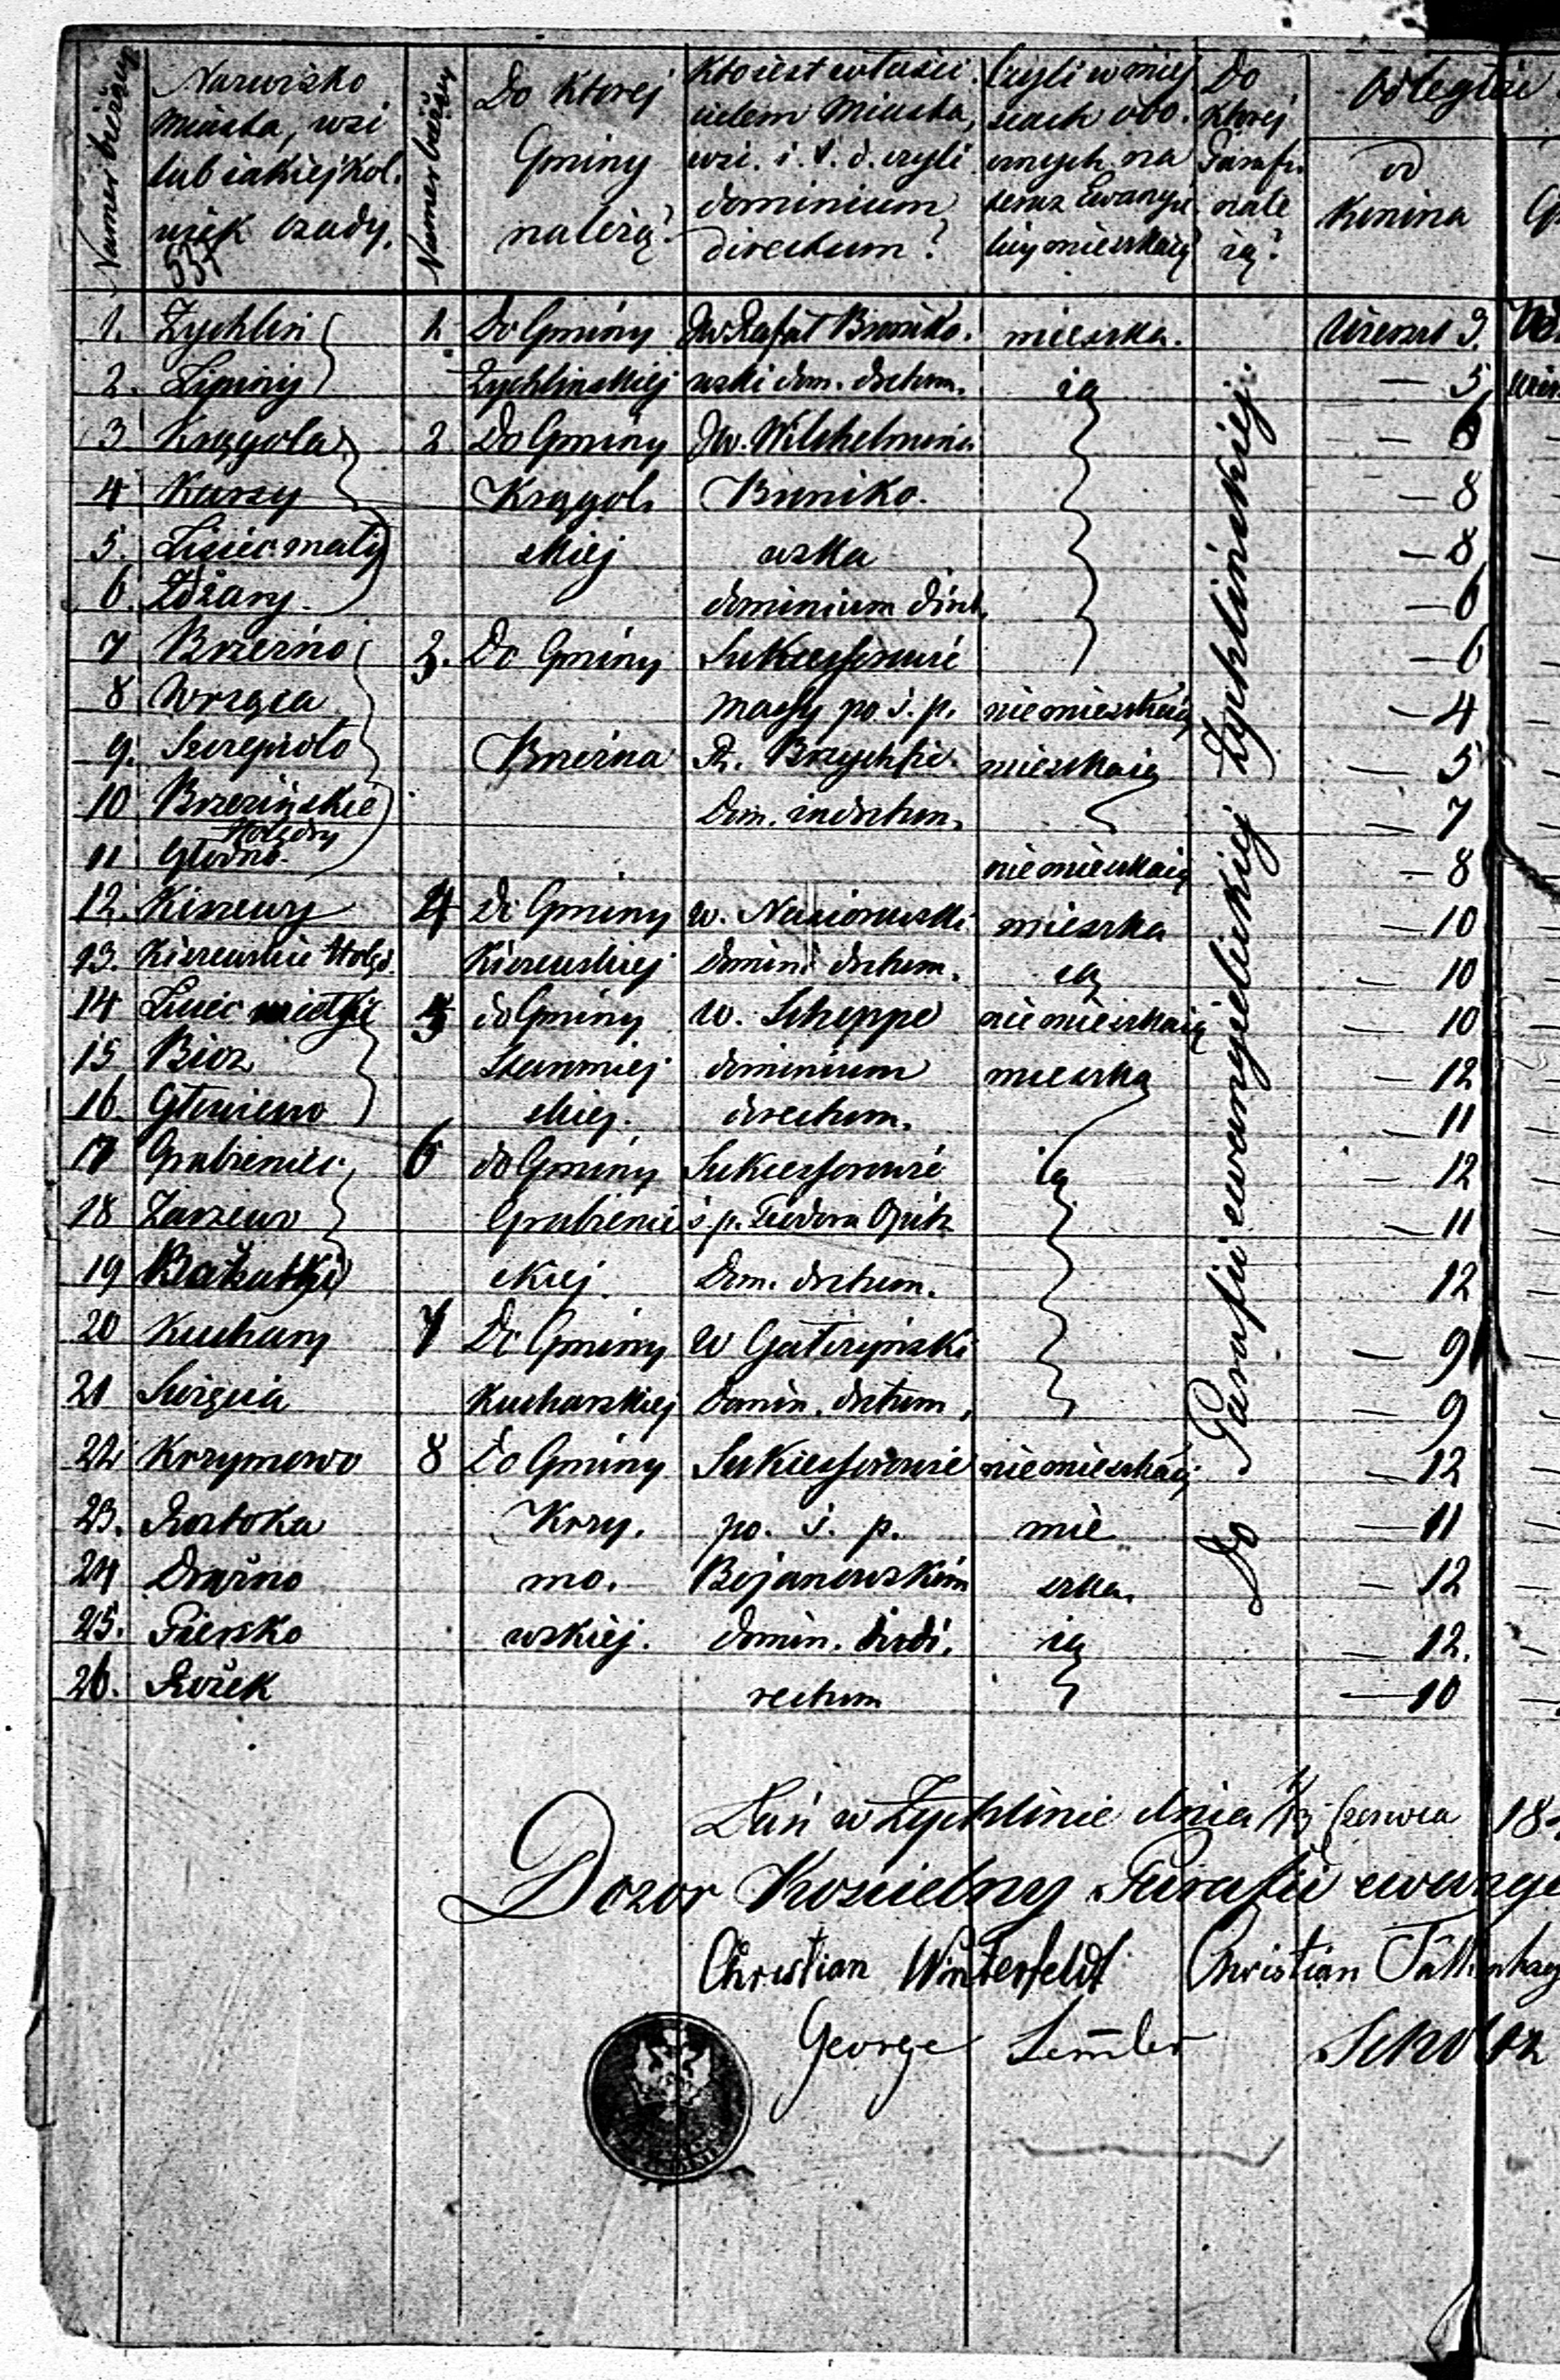 Numer bieżący
Nazwisko
Miasta, wsi
lub iakiejkol.
wiek osady.
537
Numer bieżący
Do Ktorej
Gminy
należą?
Kto iest właści
cielem Miasta,
wsi. i. t. d. czyli
dominium
directum?
Czyli w miej
scach obo.
cnych na
teraz Ewangie
licy mieszkaią
Do
Ktorej
Parafii
nale
żą?
Odległ
od
Konina
1. Zychlin 1. Do Gminy Jw Rafał Broniko. mieszka. Wiorst 3.
2. Lipiny Zychlinskiej wski dom. drctum. ią — 5,
3. Krągola 2 Do Gminy Jw. Wilhelmina — 6
4 Karsy Krągol. Broniko. — 8
5. Lisiec mały skiej wska — 8
6. Zdżary. dominium dirct. — 6
7 Brzezno 3. Do Gminy Sukcessorowie — 6
8 Wrząca massy po ś. p. nie mieszkaią — 4
9. Szczepidło Brzezna mieszkaią — 5
10 Brzezińskie Dom. — 7
Holędry
11 Głodno. nie mieszkaią — 8
12. Kiszewy 4 Do Gminy w. mieszka — 10
13. Kiszewskie Holęd. Kiszewskiej Domin. drctum. ią — 10
14 Lisiec wielki 5 do Gminy w. Scheppe nie mieszkaią — 10
15 dominium mieszka — 12
16 skiej. directum. — 11
17 Grabieniec 6 do Gminy Sukcessorowie ią — 12
18 Zarzewo Grabienie ś. p. Teodora Opitz — 11
19 skiej. Dom. drctum. — 12
20 Kuchary 7 Do Gminy W — 9
21 Kucharskiej Domin. drctum, — 9
22 Krzymowo 8 Do Gminy Sukcessorowie nie mieszkaią — 12
23. Roztoka Krzy. po. ś. p. mie — 11
24 Drążno mo. Bojanowskim szka. — 12
25. Piersko wskiej. domin. ią — 12.
26. Rożek rectum — 10
Do Parafii ewangielickiej Zychlińskiej.
Dań w Zychlinie dnia Czerwca 18
Dozor Koscielny Parafii ewangie
Christian Winterfeldt Christian
George Scholtz